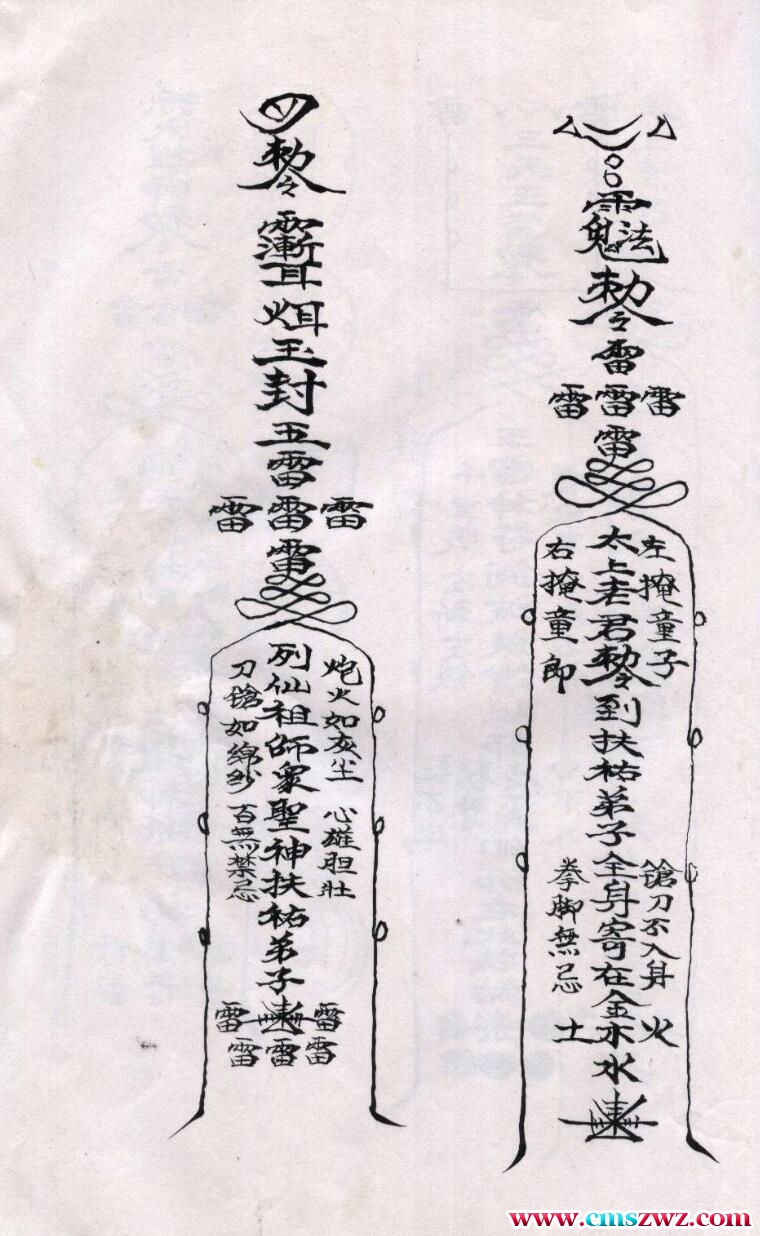 勅令
雷
雷雷雷
雷
左掩童子
太上老君勅令到扶祐弟子全身寄在金木水
右掩童郎
鎗刀不入身
火
拳脚無忌
土
勅令
玉封
五雷
雷雷雷
雷
炮火如灰尘
心雄胆壮
列仙祖師衆聖神扶祐弟子
刀鎗如綿紗
百無禁忌
雷雷
雷雷雷
www.cmszwz.com